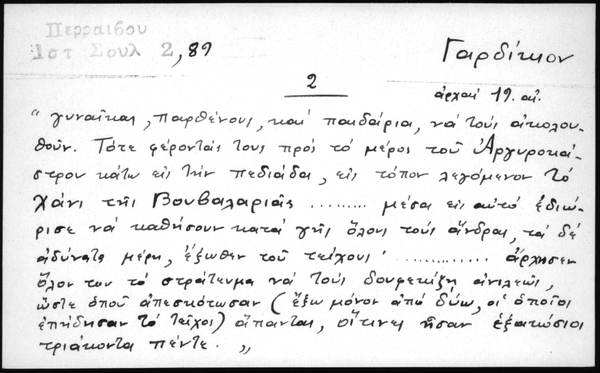 Περραιβου
Ιστ Σουλ 2, 89
Γαρδίκιον
2
ἀρχαὶ 19. αἰ.
“ γυναῖκας, παρθένους, καὶ παιδάρια, νὰ τοὺς ἀκολου-
θοῦν. Τότε φέροντάς τους πρὸς τὸ μέρος τοῦ Ἀργυροκά-
στρου κάτω εἰς τὴν πεδιάδα, εἰς τόπον λεγόμενον τὸ
Χάνι τῆς Βουβαλαριᾶς ......... μέσα εἰς αὐτὸ ἐδιώ-
ρισε νὰ καθήσουν κατὰ γῆς ὅλους τοὺς ἄνδρας, τὰ δὲ
ἀδύνατα μέρη, ἔξωθεν τοῦ τείχους ......... ἄρχησεν
ὅλον των τὸ στράτευμα νὰ τοὺς δουφεκίζῃ ἀνιλεῶς,
ὥστε ὁποῦ ἀπεσκότωσαν (ἔξω μόνον ἀπὸ δύω, οἱ ὁποῖοι
ἐπήδησαν τὸ τεῖχος) ἅπαντας, οἵτινες ἦσαν ἑξακόσιοι
τριάκοντα πέντε. „